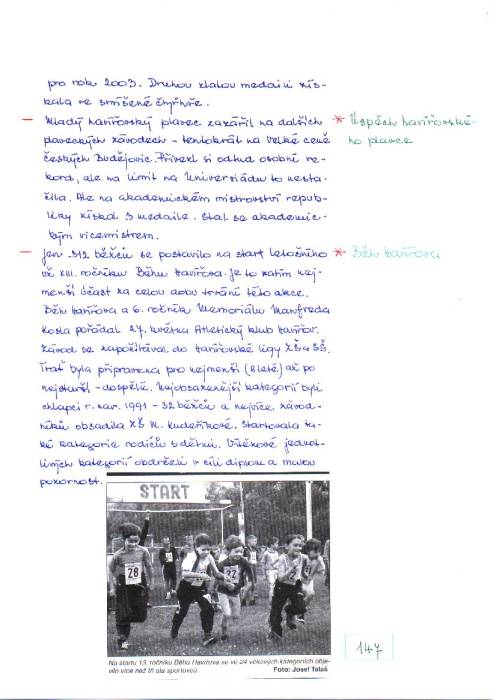 pro rok 2003. Druhou zlatou medaili zís-
kala ve smíšené čtyřhře.
— Mladý havířovský plavec zazářil na dalších
plaveckých závodech - tentokrát na Velké ceně
Českých Budějovic. Přivezl si odtud osobní re-
kord, ale na limit na Univerziádu to nesta-
čilo. Ale na akademickém mistrovství repub-
liky získal 3 medaile. Stal se akademic-
kým vicemistrem.
* Úspěch havířovské-
ho plavce
— Jen 312 běžců se postavilo na start letošního
už XIII. ročníku Běhu Havířova. Je to zatím nej-
menší účast za celou dobu trvání této akce.
Běh Havířova a 6. ročník Memoriálu Manfreda
Kosta pořádal 27. května Atletický klub Havířov.
Závod se započítával do Havířovské ligy ZŠ a SŠ.
Trať byla připravena pro nejmenší (8 leté) až po
nejstarší - dospělé. Nejobsazenější kategorií byli
chlapci r. nar. 1991 - 32 běžců a nejvíce závod-
níků obsadila ZŠ M. Kudeříkové. Startovala ta-
ké kategorie rodičů s dětmi. Vítězové jednot-
livých kategorií obdrželi v cíli diplom a malou
pozornost.
* Běh Havířova
START
28
22
Na startu 13. ročníku Běhu Havířova se ve 24 věkových kategoriích obje-
vilo více než tři sta sportovců.
Foto: Josef Talaš
147